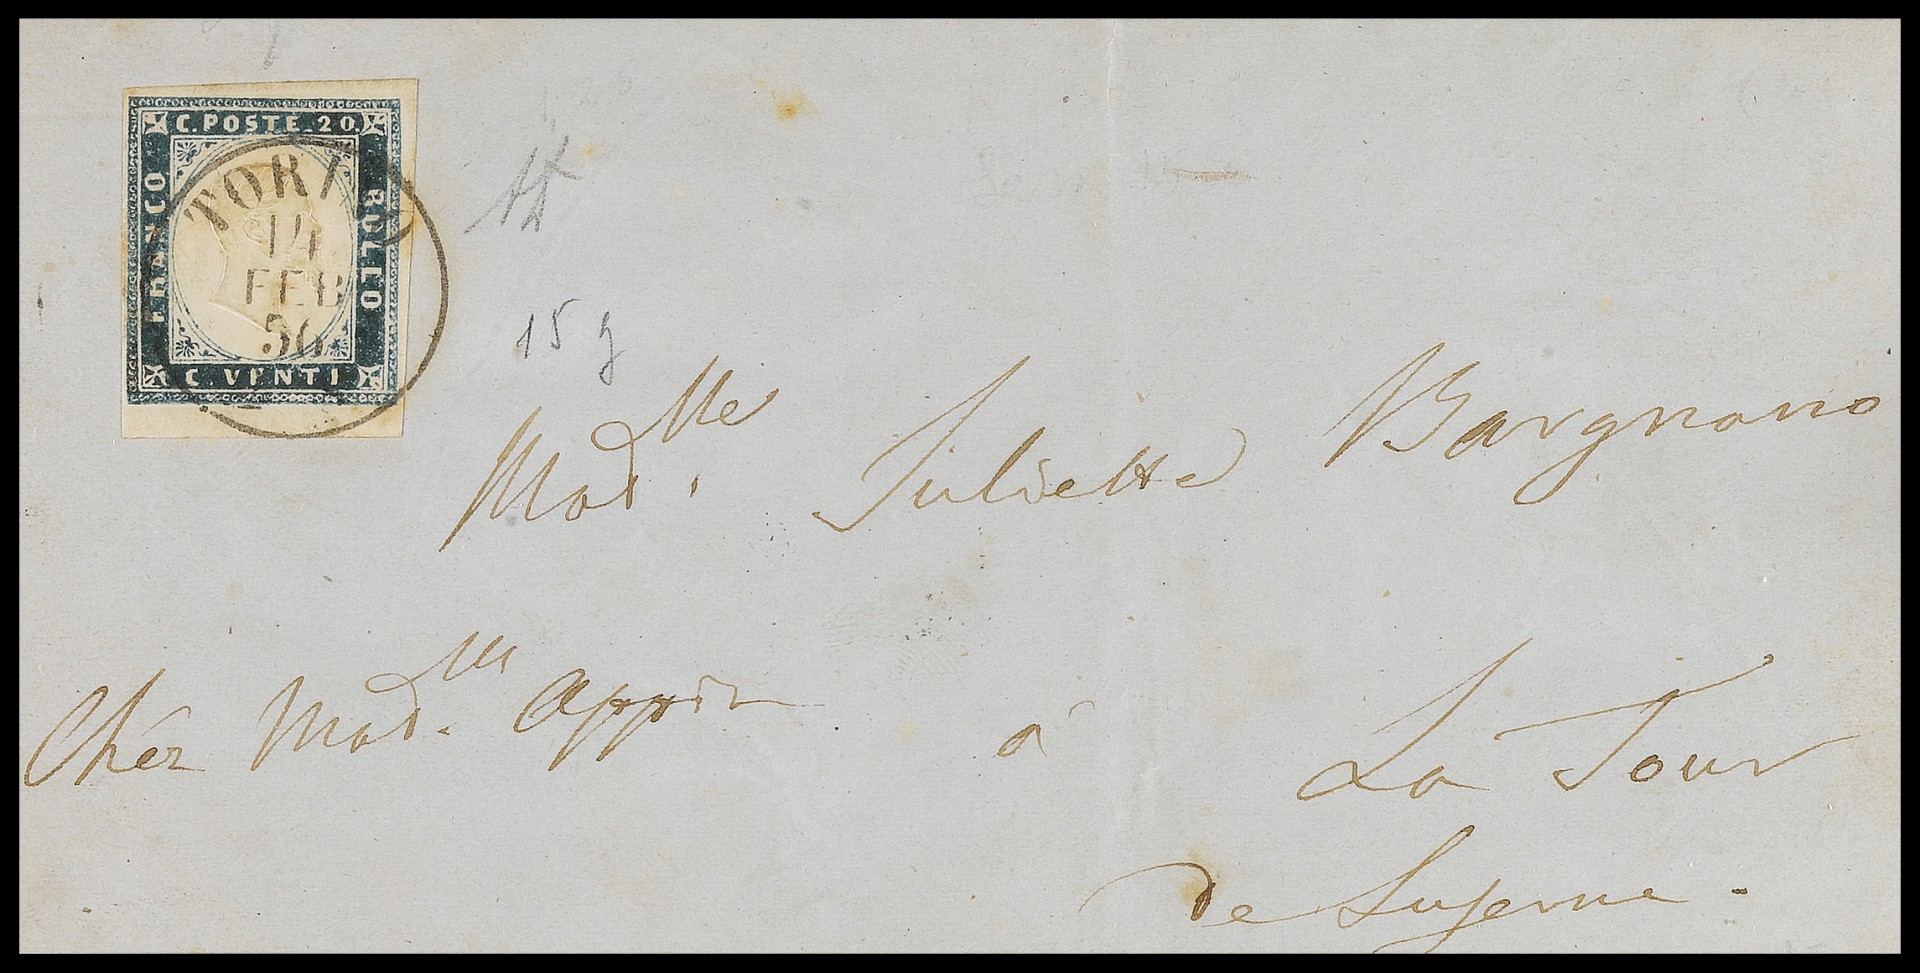 C. POSTE. 20.
FRANCO
BOLLO
C. VENTI
TORINO
14
FEB
56
15 g
Mad.lle Juliette Bargnano
Chéz Mad.lle Appia
à La Tour
de Luserne.